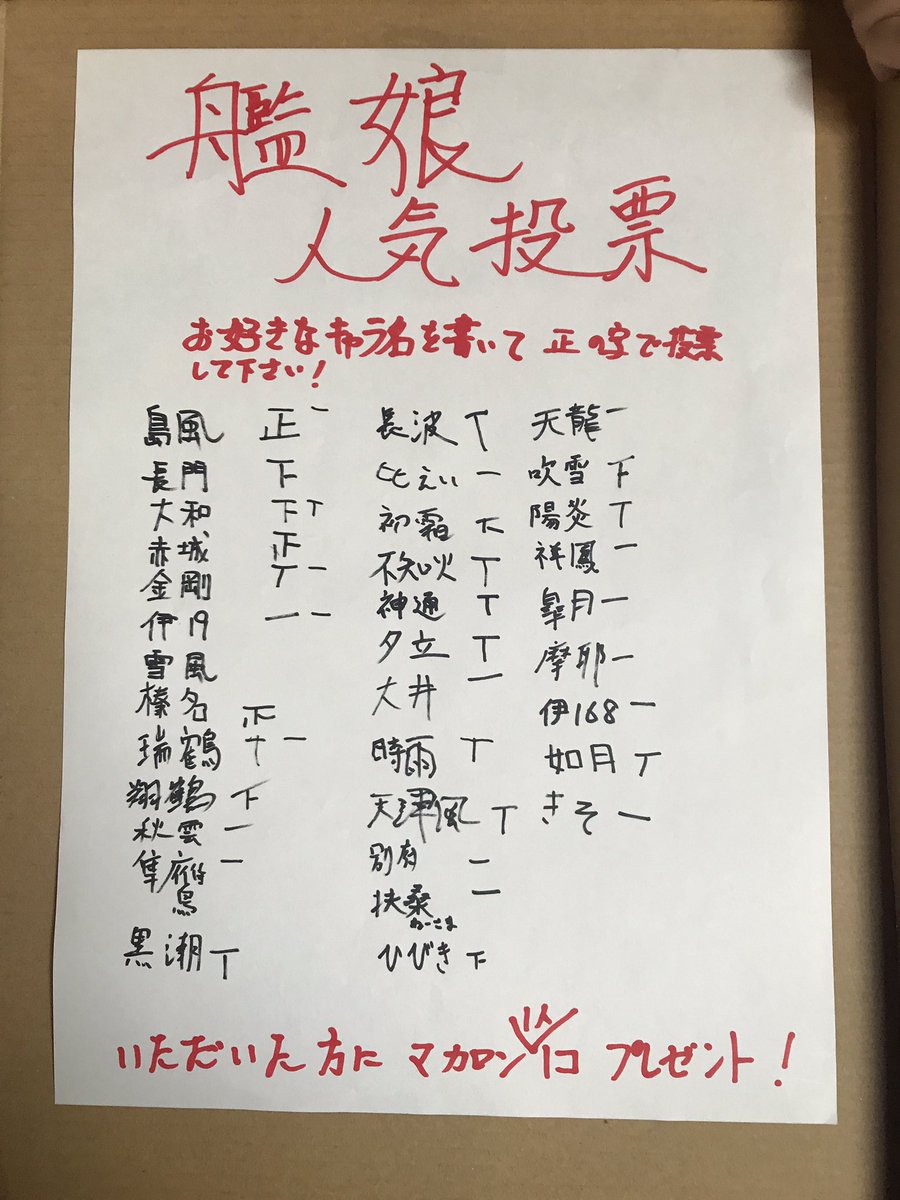 艦娘
人気投票
お好きなキャラ名を書いて 正の字で投票
して下さい!
島風 正一
長門 下
大和 下丅
赤城 正
金剛 丅一
伊19 一一
雪風
榛名 正
瑞鶴 一
翔鶴 下
秋雲 一
隼鷹 一
黒潮 丅
長波 丅
比えい 一
初霜
不知火 丅
神通 丅
夕立 丅
大井 一
時雨 丅
天津風 丅
別府 一
扶桑 一
ねーさま
ひびき 下
天龍 一
吹雪 下
陽炎 丅
祥鳳 一
皐月 一
摩耶 一
伊168 一
如月 丅
きそ 一
いただいた方にマカロン1人1コ プレゼント!